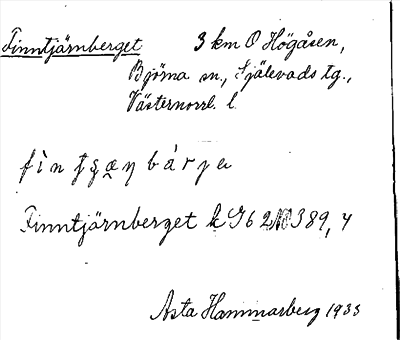 Finntjärnberget 3 km O Högåsen,
Björna sn., Själevads tg.,
Västernorrl. l.
Finntjärnberget k G6 389, 4
Asta Hammarberg 1933